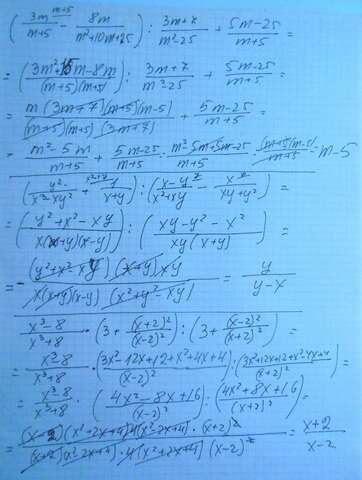 (3m^{m+5}/m+5 − 8m/m²+10m+25) : 3m+7/m²−25 + 5m−25/m+5 =
= (3m²+15m−8m/(m+5)(m+5)) : 3m+7/m²−25 + 5m−25/m+5 =
= m(3m+7)(m+5)(m−5)/(m+5)(m+5)(3m+7) + 5m−25/m+5 =
= m²−5m/m+5 + 5m−25/m+5 = m²−5m+5m−25/m+5 = (m+5)(m−5)/m+5 = m−5
= (y²+x²−xy/x(x+y)(x−y)) : (xy−y²−x²/xy(x+y)) =
= −(y²+x²−xy)(x+y)xy/x(x+y)(x−y)(x²+y²−xy) = y/y−x
x³−8/x³+8 · (3+(x+2)²/(x−2)²) : (3+(x−2)²/(x+2)²) =
= x³−8/x³+8 · (3x²−12x+12+x²+4x+4/(x−2)²) : (3x²+12x+12+x²−4x+4/(x+2)²) =
= x³−8/x³+8 · (4x²−8x+16/(x−2)²) : (4x²+8x+16/(x+2)²) =
= (x−2)(x²+2x+4)4(x²−2x+4)·(x+2)²/(x+2)(x²−2x+4)·4(x²+2x+4)(x−2)² = x+2/x−2